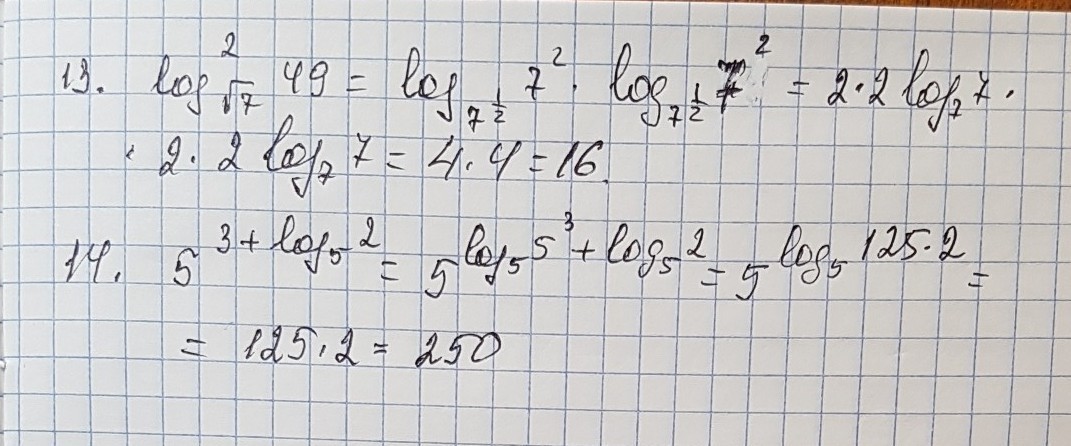 13. log²_√7 49 = log_7^½ 7² · log_7^½ 7² = 2·2 log₇ 7 ·
· 2·2 log₇ 7 = 4·4 = 16.
14. 5^(3 + log₅ 2) = 5^(log₅ 5³ + log₅ 2) = 5^(log₅ 125·2) =
= 125·2 = 250